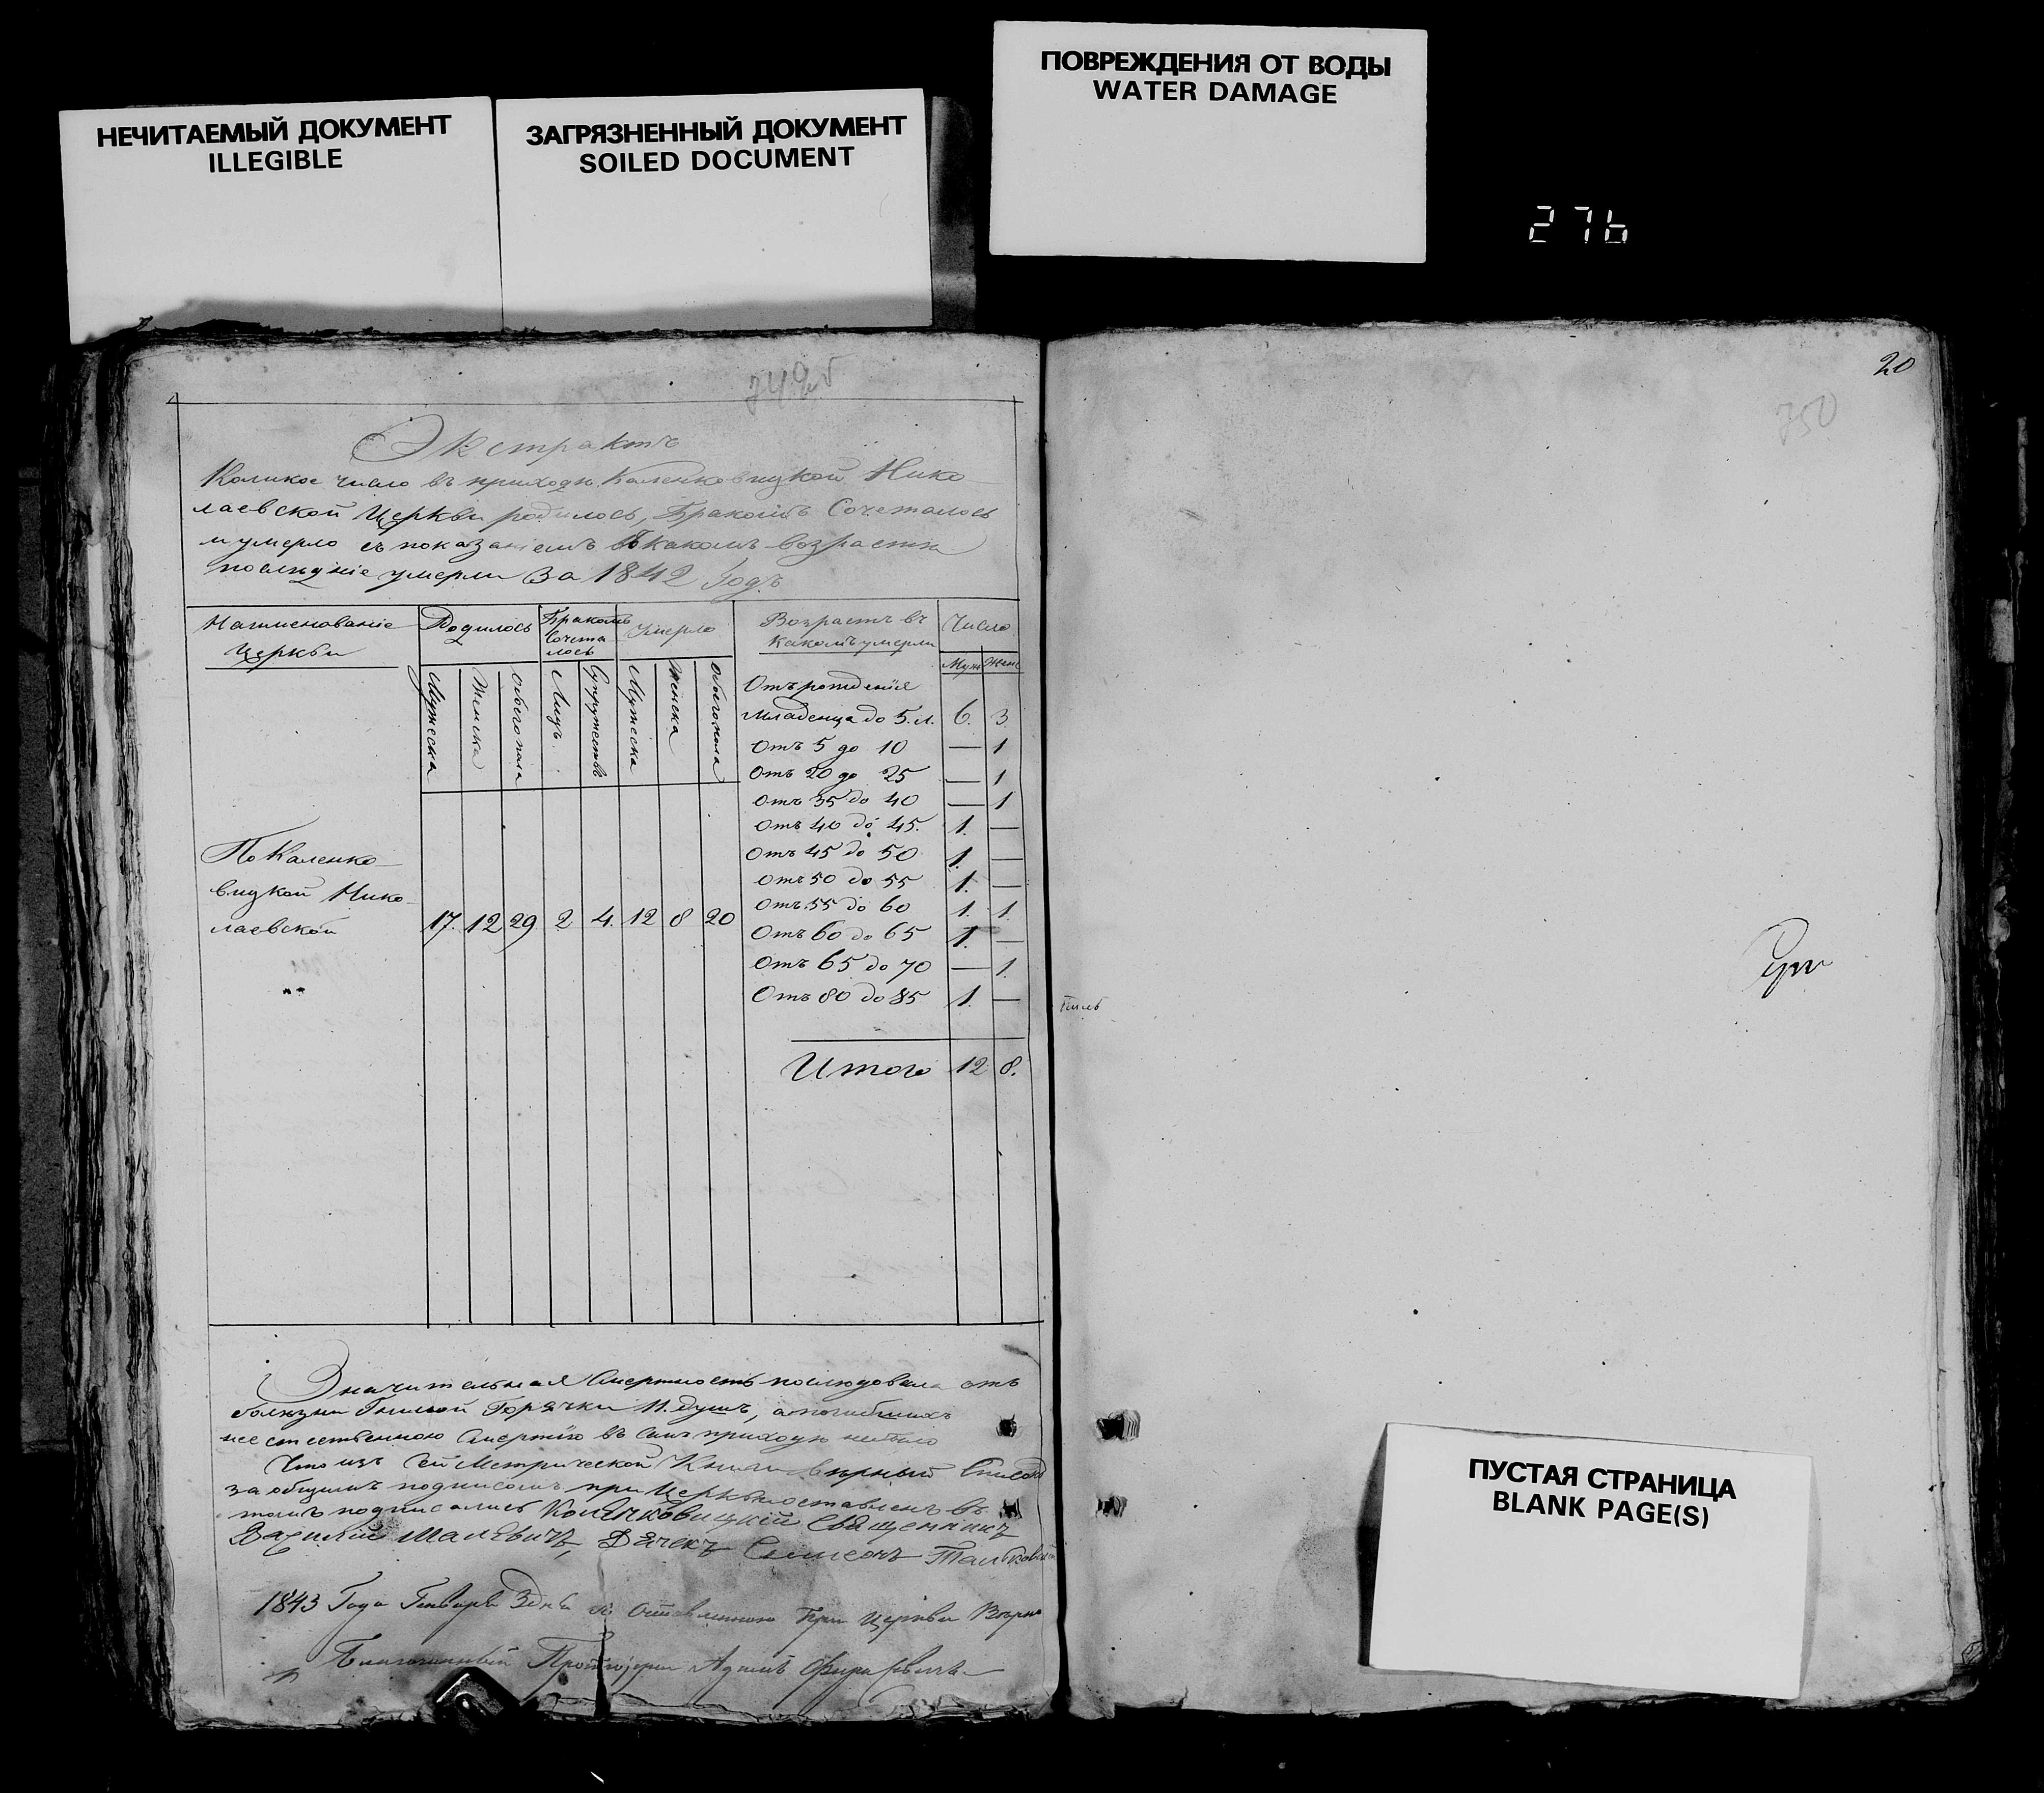 НЕЧИТАЕМЫЙ ДОКУМЕНТ
ILLEGIBLE
ЗАГРЯЗНЕННЫЙ ДОКУМЕНТ
SOILED DOCUMENT
ПОВРЕЖДЕНИЯ ОТ ВОДЫ
WATER DAMAGE
276
749
Экстрактъ
Коликое число въ приходѣ Каленковицкой Нико
лаевской Церкви родилось, Бракомъ Сочеталось
и умерло съ показаніемъ въ какомъ возрастѣ
послѣдніе умерли за 1842 Годъ
Наименованіе Церкви
Родилось
Бракомъ Сочета лось
умерло
Возрастъ въ какомъ умерли
Число
Мужеска
Женска
Обоего пола
Лицъ
Супружествъ
Мужеска
Женска
Обоего пола
Муж
Женс
Отъ рожденія
Младенца до 5. л. 6. 3
Отъ 5 до 10 — 1
Отъ 20 до 25 — 1
Отъ 35 до 40 — 1
Отъ 40 до 45. 1. —
Отъ 45 до 50 1. —
Отъ 50 до 55 1. —
Отъ 55 до 60 1. 1.
Отъ 60 до 65 1. —
Отъ 65 до 70 — 1.
Отъ 80 до 85 1. —
По Каленко
вицкой Нико
лаевской 17. 12 29 2 4. 12 8 20
Итого 12 8.
Значительная Смертность послѣдовала отъ
болѣзни Гнилой Горячки 11. душъ, а погибшихъ
неестественною Смертію въ семъ приходѣ небыло
Что изъ сей Метрической Книги вѣрный Списокъ
за общимъ подписомъ при Церкви оставленъ въ
томъ подписались Коленковицкій Священникъ
Василій Малевичъ, Дячекъ Симеонъ
1843 Года Генваря 3 дня съ Оставленною При Церкви Вѣрно
Благочинный Протоіерей Адамъ
20
750
ПУСТАЯ СТРАНИЦА
BLANK PAGE(S)